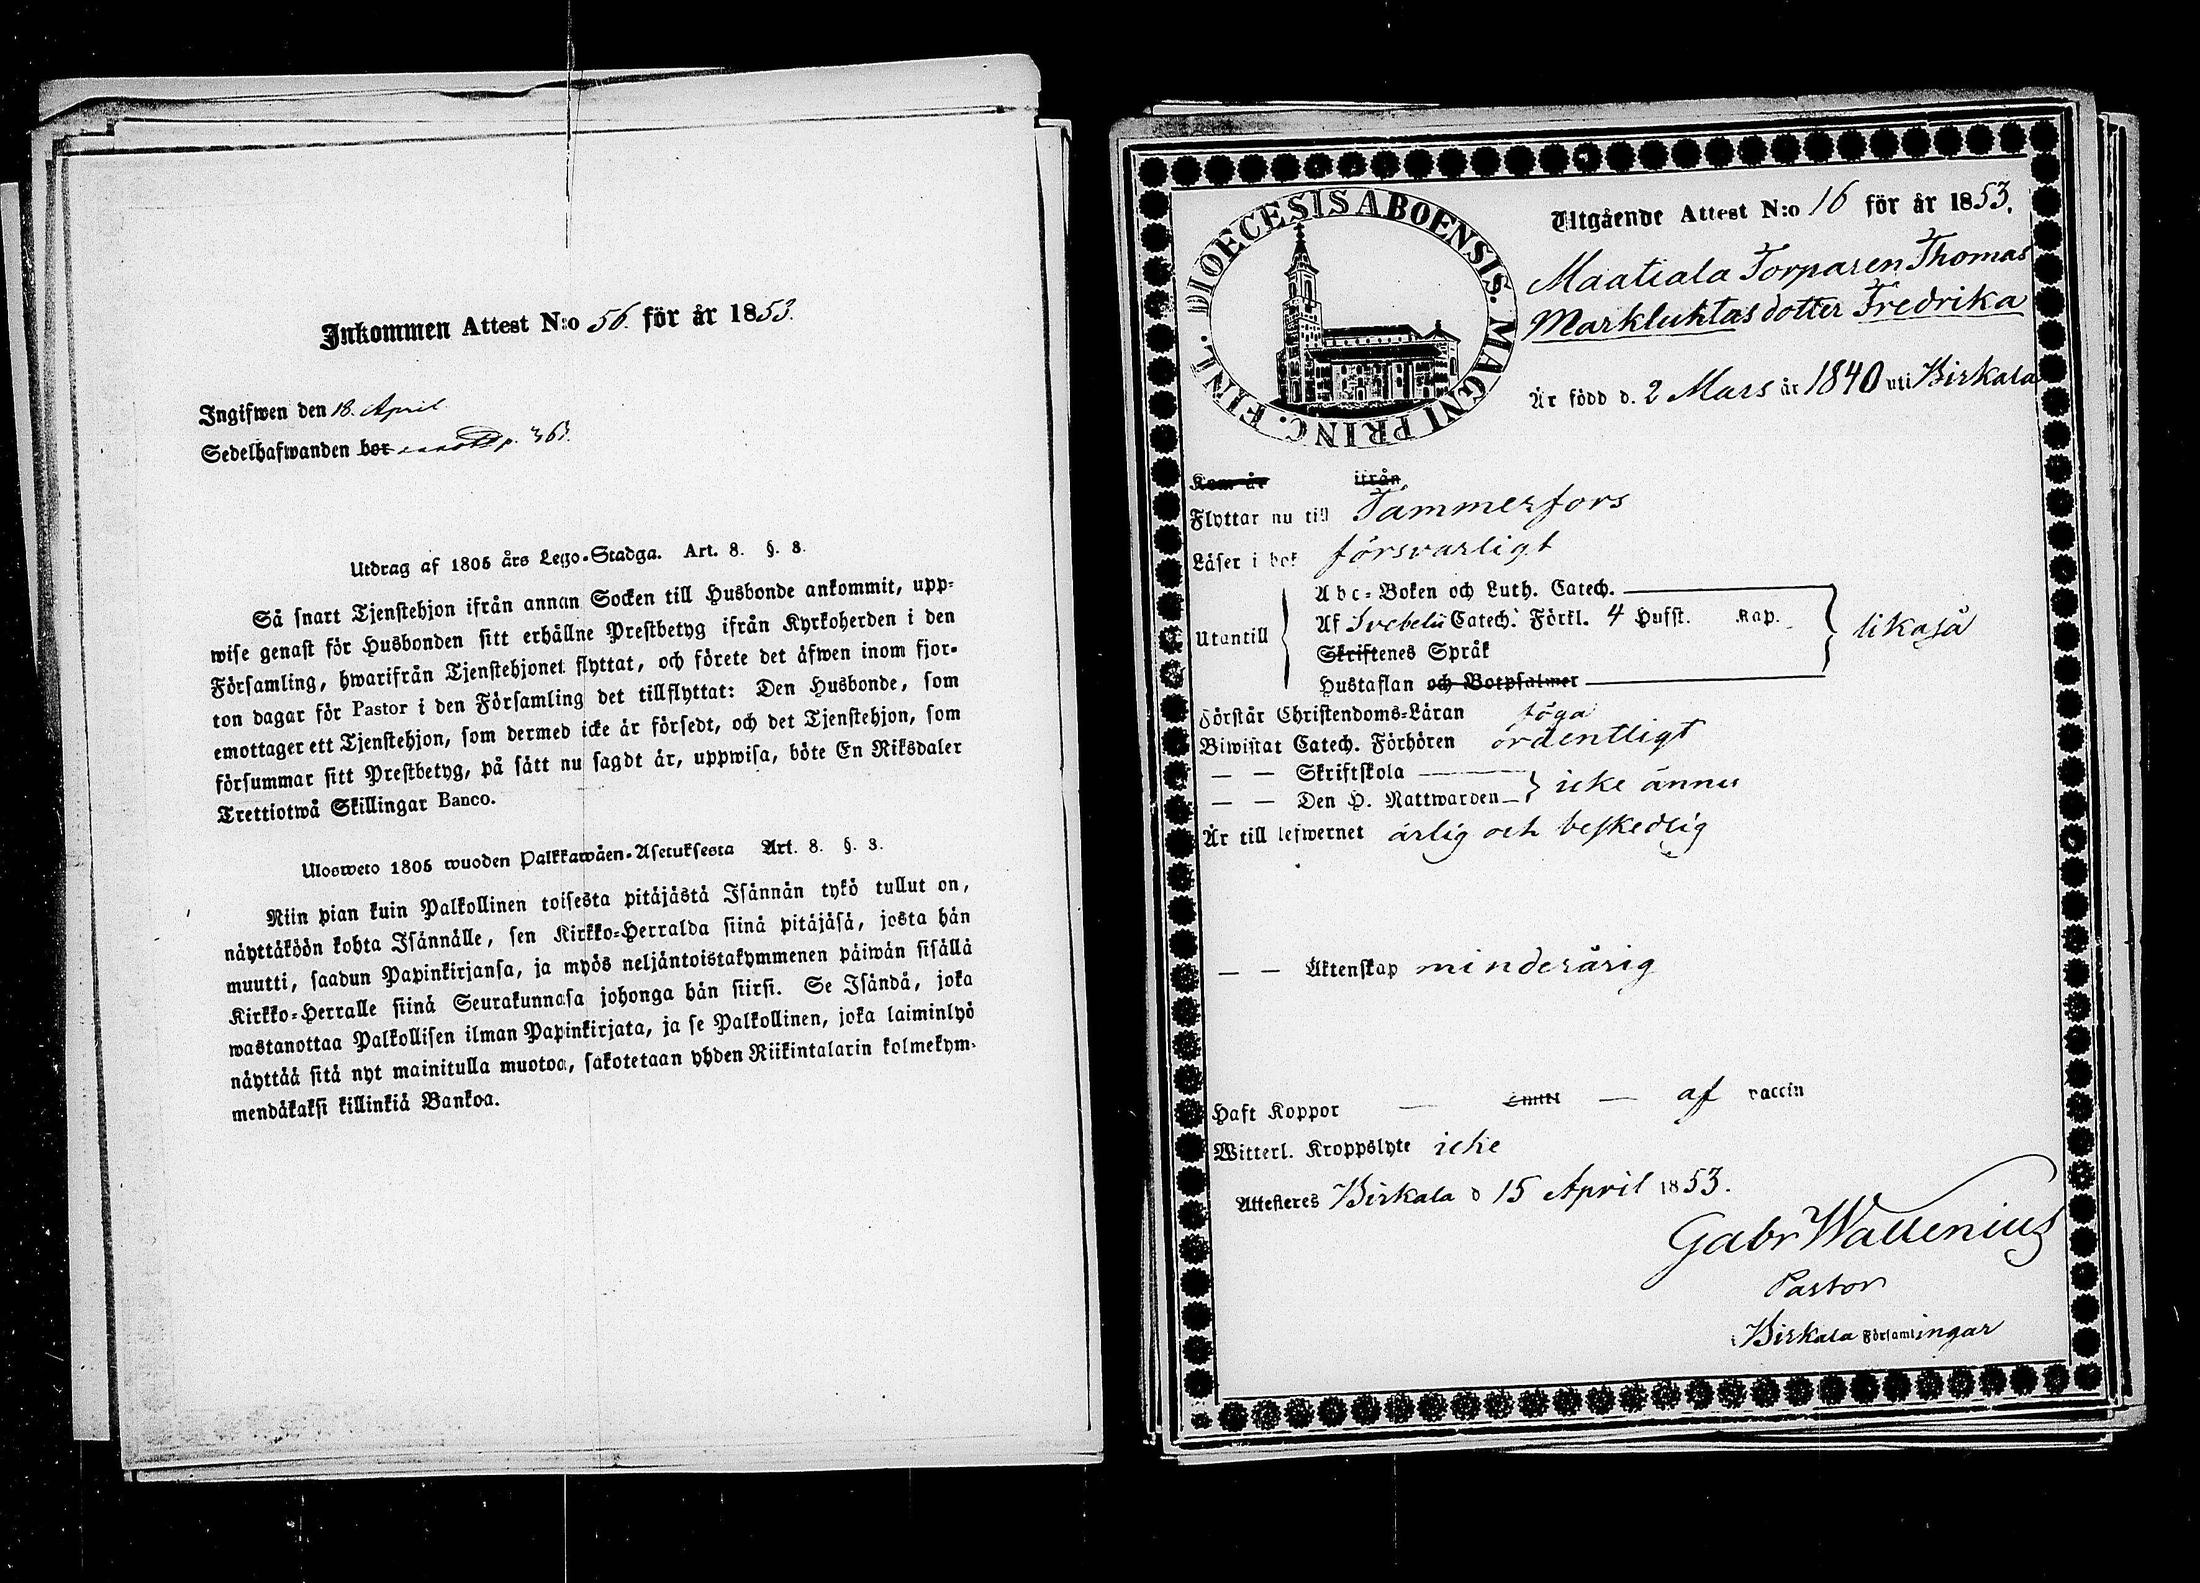 Inkommen Attest N:o 56. för år 1853.
Ingifwen den 18. April
Sedelhafwanden bor p. 363.
Utdrag af 1805 års Lego-Stadga. Art. 8. §. 3.
Så snart Tjenstehjon ifrån annan Socken till Husbonde ankommit, upp-
wise genast för Husbonden sitt erhållne Prestbetyg ifrån Kyrkoherden i den
Församling, hwarifrån Tjenstehjonet flyttat, och förete det äfwen inom fjor-
ton dagar för Pastor i den Församling det tillflyttat: Den Husbonde, som
emottager ett Tjenstehjon, som dermed icke är försedt, och det Tjenstehjon, som
försummar sitt Prestbetyg, på sätt nu sagdt är, uppwisa, böte En Riksdaler
Trettiotwå Skillingar Banco.
Ulosweto 1805 wuoden Palkkawäen-Asetuksesta Art. 8. §. 3.
Niin pian kuin Palkollinen toisesta pitäjästä Isännän tykö tullut on,
näyttäköön kohta Isännälle, sen Kirkko-Herralda siinä pitäjäsä, josta hän
muutti, saadun Papinkirjansa, ja myös neljäntoistakymmenen päiwän sisällä
Kirkko-Herralle siinä Seurakunnasa johonga hän siirsi. Se Isändä, joka
wastanottaa Palkollisen ilman Papinkirjata, ja se Palkollinen, joka laiminlyö
näyttää sitä nyt mainitulla muotoa, sakotetaan yhden Riikintalarin kolmekym-
mendäkaksi killinkiä Bankoa.
DIOECESIS ABOENSIS. MAGNI PRINC. FINL.
Utgående Attest N:o 16 för år 1853.
Maatiala Torparen Thomas
Markluktas dotter Fredrika
Är född d. 2 Mars år 1840 uti Birkala
Kom år ifrån
Flyttar nu till Tammerfors
Läser i bok försvarligt
Abc-Boken och Luth. Catech.
Utantill Af Svebelii Catech. Förkl. 4 Hufst. Kap. likaså
Skriftenes Språk
Hustaflan och Botpsalmer
Förstår Christendoms-Läran föga
Biwistat Catech. Förhören ordentligt
— — Skriftskola
— — Den H. Nattwarden icke ännu
Är till lefwernet ärlig och beskedlig
— — Äktenskap minderårig
Haft Koppor — — af vaccin
Witterl. Kroppslyte icke
Attesteres Birkala d 15 April 1853.
Gabr Wallenius
Pastor
i Birkala Församlingar